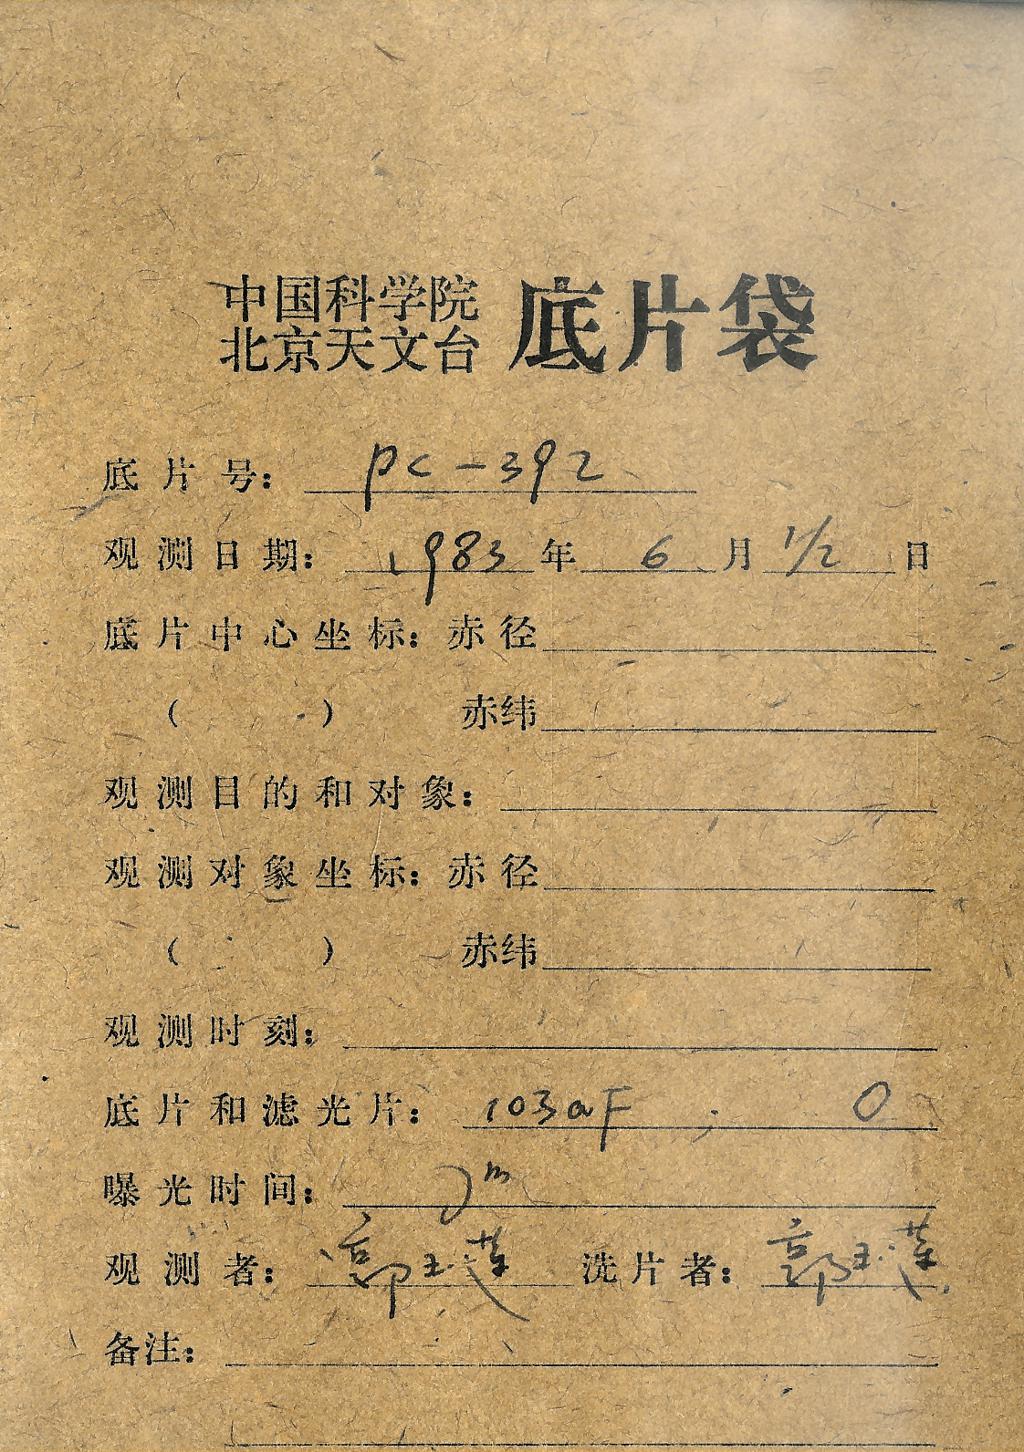 中国科学院
北京天文台 底片袋
底片号: PC-392
观测日期: 1983年 6月 1/2 日
底片中心坐标: 赤径
( ) 赤纬
观测目的和对象:
观测对象坐标: 赤径
( ) 赤纬
观测时刻:
底片和滤光片: 103aF ; 0
曝光时间:
观测者: 郭玉莲 洗片者: 郭玉莲
备注: